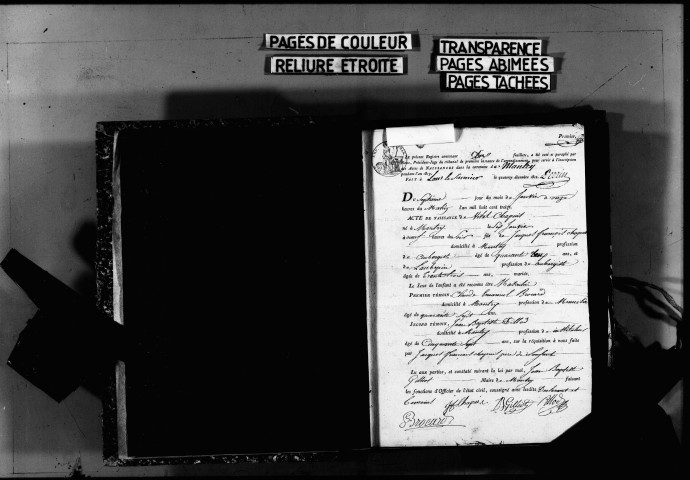 PAGES DE COULEUR
RELIURE ETROITE
TRANSPARENCE
PAGES ABIMEES
PAGES TACHEES
Premier
LE présent Registre contenant feuillets, a été coté et paraphé par
Président-Juge du tribunal de première instance de l'arrondissement, pour servir à l'inscription
des Actes de NAISSANCES dans la commune de Mantry
pendant l'an 1813.
FAIT à Lons le Saunier le quatorze décembre 1812. Perrin
Du Septième jour du mois de Janvier à onze
heures du Matin l'an mil huit cent treize.
ACTE DE NAISSANCE de Chapuis
né à Mantry le Six Janvier
à neuf heures du Soir fils de Jacques François Chapuis
domicilié à Mantry profession
de Aubergiste âgé de quarante ans, et
de profession de Aubergiste
âgée de trente ans, mariés.
Le Sexe de l'enfant a été reconnu être Masculin
PREMIER TÉMOIN, Claude Emmanuel Brocard
domicilié à Mantry profession de
âgé de quarante Sept ans
SECOND TÉMOIN, Jean Baptiste
domicilié à Mantry profession de
âgé de Cinquante Sept ans, sur la réquisition à nous faite
par Jacques François Chapuis père de l'enfant
Lu aux parties, et constaté suivant la loi par moi, Jean Baptiste
Maire de Mantry faisant
les fonctions d'Officier de l'état civil, soussigné avec lesdits
témoins
Chapuis
Brocard